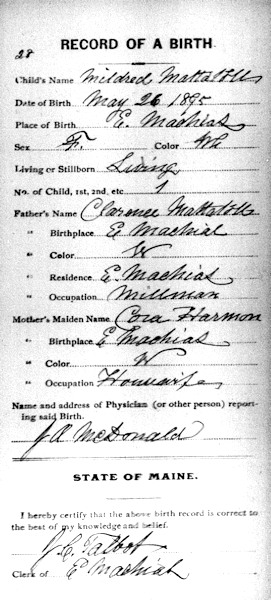 28
RECORD OF A BIRTH
Child's Name Mildred Mattatoll
Date of Birth May 26 1895
Place of Birth E. Machias
Sex F. Color Wh
Living or Stillborn Living
No. of Child, 1st, 2nd, etc 1
Father's Name Clarence Mattatoll
" Birthplace E Machias
" Color W
" Residence E. Machias
" Occupation Millman
Mother's Maiden Name Cora Harmon
" Birthplace E Machias
" Color W
" Occupation Housewife
Name and address of Physician (or other person) report-
ing said Birth.
J A McDonald
STATE OF MAINE.
I hereby certify that the above birth record is correct to
the best of my knowledge and belief.
J. C. Talbot
Clerk of E Machias